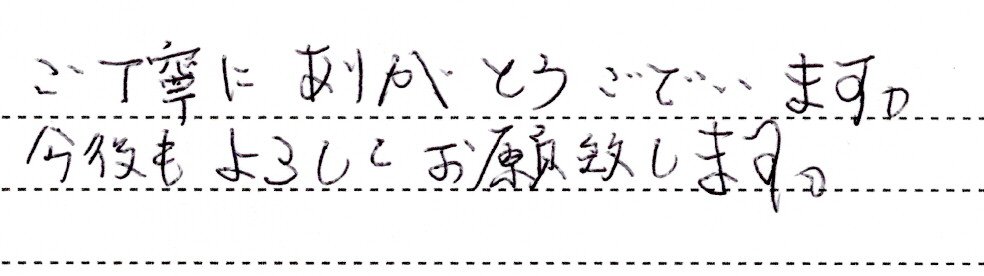 ご丁寧にありがとうございます。
今後もよろしくお願致します。